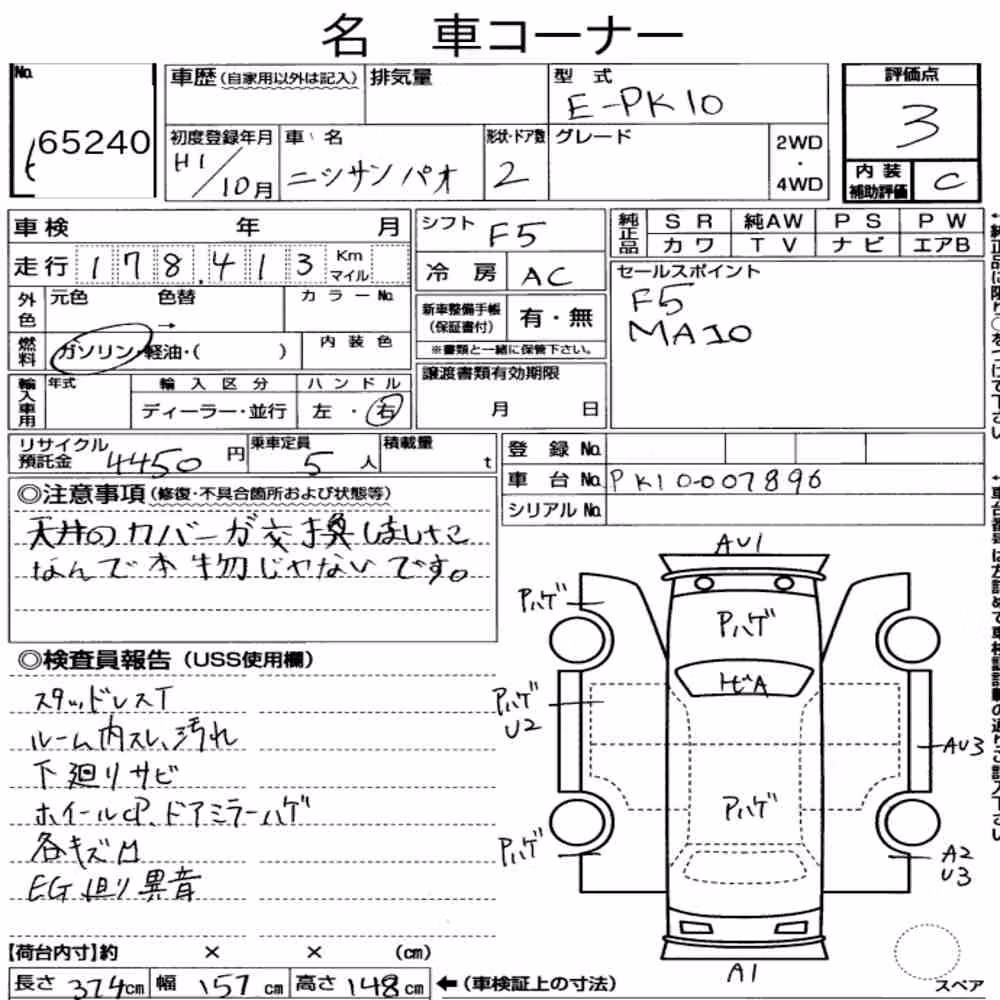 名 車コーナー
No.
65240
車歴(自家用以外は記入)
排気量
型 式
E-PK10
評価点
3
初度登録年月
H1/10月
車 名
ニッサン パオ
形状・ドア数
2
グレード
2WD
・
4WD
内装
補助評価
C
車検 年 月
走行 178,413 Km マイル
シフト F5
冷房 AC
純正品 SR 純AW PS PW
カワ TV ナビ エアB
外色 元色 色替 →
カラーNo.
新車整備手帳
(保証書付)
有・無
※書類と一緒に保管下さい。
セールスポイント
F5
MA10
燃料 ガソリン・軽油・( )
内装色
輸入車用 年式
輸入区分
ディーラー・並行
ハンドル
左・右
譲渡書類有効期限
月 日
リサイクル
預託金 4450 円
乗車定員
5 人
積載量
t
登録No.
車台No. PK10-007896
シリアルNo.
◎注意事項(修復・不具合箇所および状態等)
天井のカバーが交換しました
なんで本物じゃないです。
◎検査員報告(USS使用欄)
スタッドレスT
ルーム内スレ、汚れ
下廻りサビ
ホイールcP、ドアミラーハゲ
各キズ凹
EG廻り異音
AU1
Pハゲ
Pハゲ
トビA
Pハゲ
U2
AU3
Pハゲ
Pハゲ
A2
U3
A1
スペア
【荷台内寸】約 × × (cm)
長さ 374cm 幅 157cm 高さ 148cm ←(車検証上の寸法)